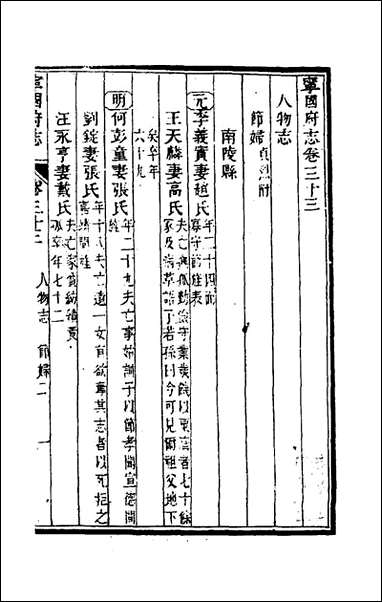 寧國府志卷三十三
人物志
節婦貞烈附
南陵縣
元李義實妻趙氏年二十四而寡守節
王天麟妻高氏夫亡與孤勤儉守業歲饑以粟者七十餘家及病草語子若孫曰今可見爾祖父地下
矣卒年六十九
明何彭童妻張氏年二十九夫亡事姑誨子以節孝聞宣德間
劉錠妻張氏年十八夫亡遺一女有欲奪其志者以死拒之
汪永亨妻戴氏夫亡家貧紡績
卒年七十二
寧國府志 卷三十三 人物志 節婦二 一